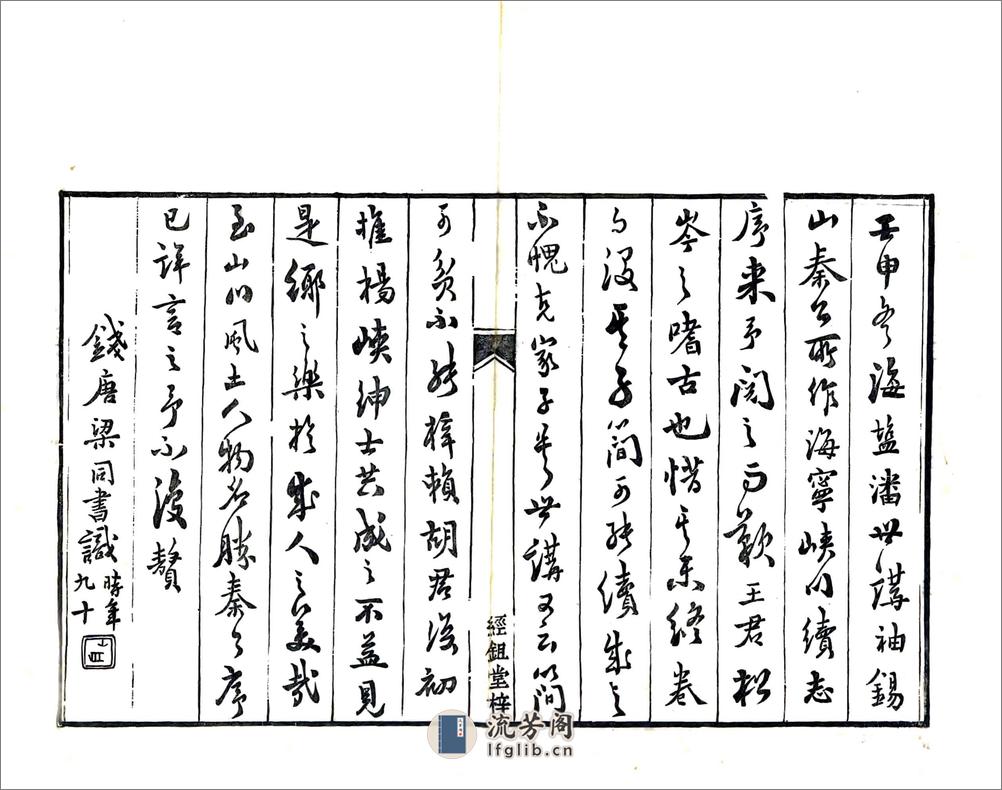 壬申冬海鹽潘世講袖錫
山秦公所作海寧峽川續志
序来予閱之而歎王君松
岑之嗜古也惜其未終卷
而没其子簡可能續成之
不愧克家子矣世講又云簡
可貧不能梓賴胡君浚初
榷楊峽紳士共成之不益見
是鄉之樂於成人之美哉
至山川風土人物名勝秦公序
已詳言之予不復贅
錢唐梁同書識時年九十
經鉏堂梓
流芳阁
lfglib.cn